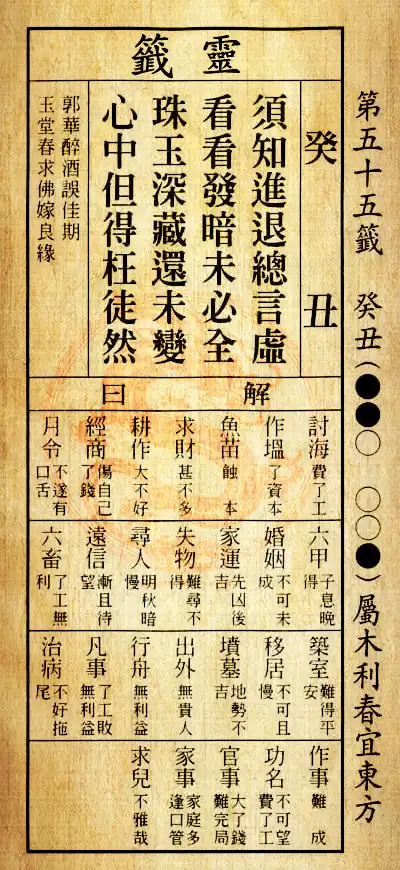 第五十五籤 癸丑(●●○ ○○●)屬木利春宜東方
靈籤
癸丑
須知進退總言虛
看看發暗未必全
珠玉深藏還未變
心中但得枉徒然
郭華醉酒誤佳期
玉堂春求佛嫁良緣
解曰
討海 費了工
作塭 了資本
魚苗 蝕本
求財 甚不多
耕作 大不好
經商 傷自己了錢
月令 不遂有口舌
六甲 子息晚得
婚姻 不可未成
家運 先凶後吉
失物 難尋不得
尋人 明秋暗慢
遠信 漸且待望
六畜 了工無利
築室 難得平安
移居 不可且慢
墳墓 地勢不吉
出外 無貴人
行舟 無利益
凡事 了工敗無利益
治病 不好拖尾
作事 難成
功名 不可望費了工
官事 大了錢難完局
家事 家庭多逢口管
求兒 不雅哉